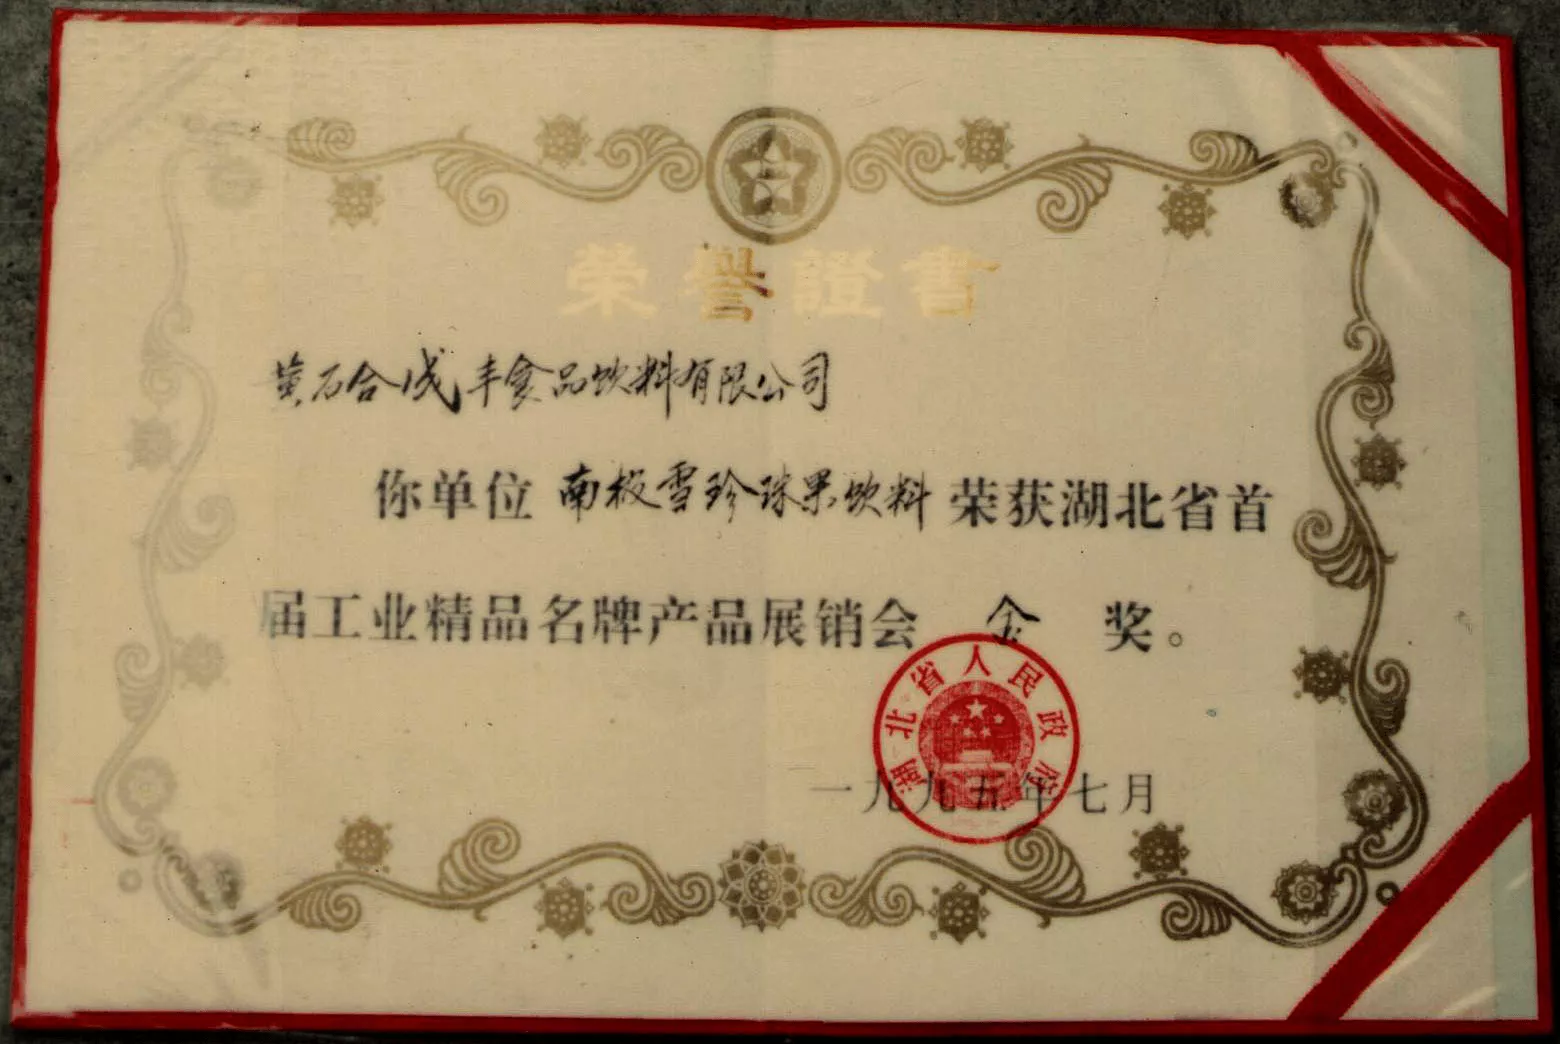 榮譽證書
黄石合成丰食品饮料有限公司
你单位 南极雪珍珠果饮料 荣获湖北省首
届工业精品名牌产品展销会 金 奖。
湖北省人民政府
一九九五年七月